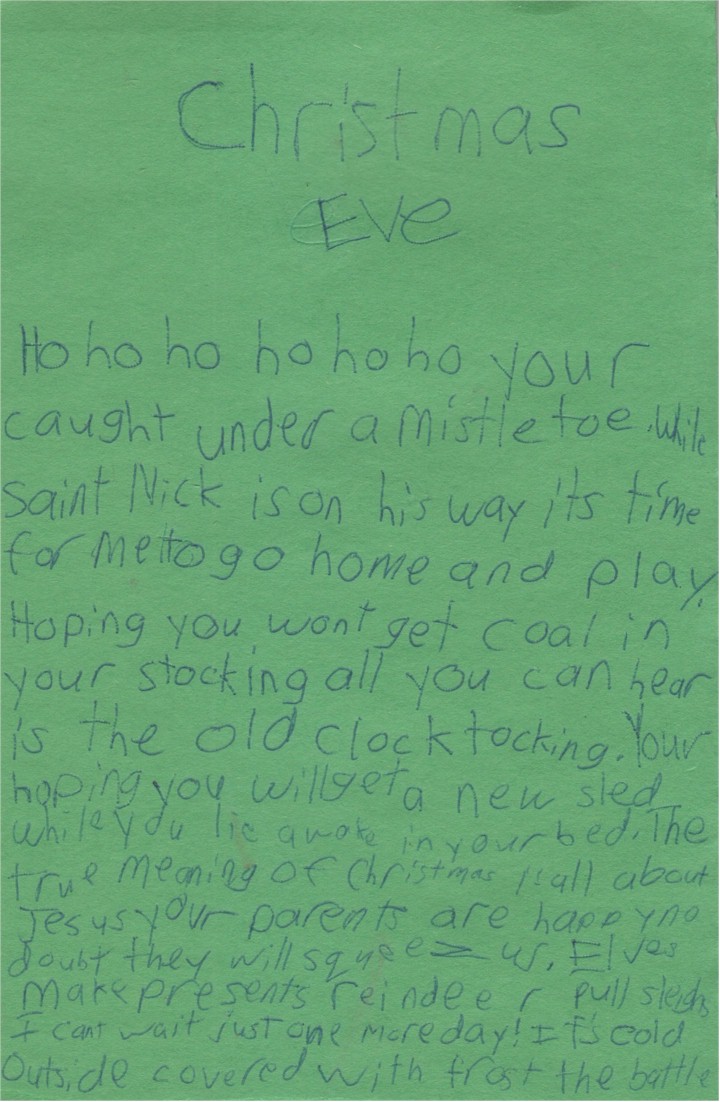 Christmas
Eve
Ho ho ho ho ho ho your
caught under a mistletoe. while
Saint Nick is on his way its time
for me to go home and play.
Hoping you wont get coal in
your stocking all you can hear
is the old clock tocking. Your
hoping you will get a new sled
while you lie awake in your bed. The
true meaning of Christmas is all about
Jesus your parents are happy no
doubt they will squeeze us. Elves
make presents reindeer pull sleighs
I cant wait just one more day! It's cold
outside covered with frost the battle